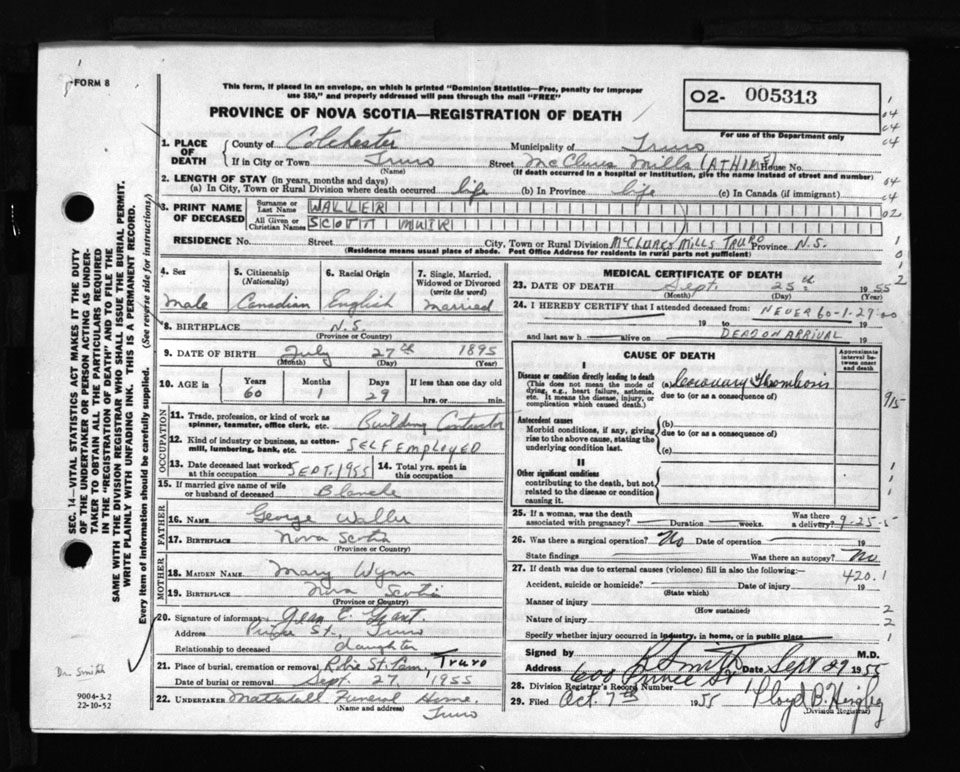 FORM 8
This form, if placed in an envelope, on which is printed "Dominion Statistics—Free, penalty for improper
use $50," and properly addressed will pass through the mail "FREE"
PROVINCE OF NOVA SCOTIA—REGISTRATION OF DEATH
02- 005313
For use of the Department only
1. PLACE OF DEATH County of Colchester Municipality of Truro
If in City or Town Truro Street McClures Mills (AT HOME) House No.
(Name) (If death occurred in a hospital or institution, give the name instead of street and number)
2. LENGTH OF STAY (in years, months and days)
(a) In City, Town or Rural Division where death occurred life (b) In Province life (c) In Canada (if immigrant)
3. PRINT NAME OF DECEASED Surname or Last Name WALLER
All Given or Christian Names SCOTT MUIR
RESIDENCE No. Street City, Town or Rural Division McCLURES MILLS TRURO Province N.S.
(Residence means usual place of abode. Post Office Address for residents in rural parts not sufficient)
4. Sex 5. Citizenship (Nationality) 6. Racial Origin 7. Single, Married, Widowed or Divorced (write the word)
Male Canadian English Married
8. BIRTHPLACE N.S.
(Province or Country)
9. DATE OF BIRTH July 27th 1895
(Month) (Day) (Year)
10. AGE in Years Months Days If less than one day old
60 1 29 hrs. or min.
OCCUPATION
11. Trade, profession, or kind of work as spinner, teamster, office clerk, etc. Building Contractor
12. Kind of industry or business, as cotton-mill, lumbering, bank, etc. SELF EMPLOYED
13. Date deceased last worked at this occupation SEPT. 1955 14. Total yrs. spent in this occupation
15. If married give name of wife or husband of deceased Blanche
FATHER
16. NAME George Waller
17. BIRTHPLACE Nova Scotia
(Province or Country)
MOTHER
18. MAIDEN NAME Mary Wynn
19. BIRTHPLACE Nova Scotia
(Province or Country)
20. Signature of informant Jean E. Grant.
Address Prince St., Truro
Relationship to deceased daughter
21. Place of burial, cremation or removal Robie St. Cem, Truro
Date of burial or removal Sept. 27, 1955
22. UNDERTAKER Mattatall Funeral Home,
(Name and address) Truro
MEDICAL CERTIFICATE OF DEATH
23. DATE OF DEATH Sept. 25th 1955
(Month) (Day) (Year)
24. I HEREBY CERTIFY that I attended deceased from: NEVER 60-1-29-00
19 to 19
and last saw h alive on DEAD ON ARRIVAL
CAUSE OF DEATH
Approximate interval between onset and death
I
Disease or condition directly leading to death (a) Coronary Thrombosis
(This does not mean the mode of dying, e.g., heart failure, asthenia, etc. It means the disease, injury, or complication which caused death.) due to (or as a consequence of)
915
Antecedent causes (b)
Morbid conditions, if any, giving rise to the above cause, stating the underlying condition last. due to (or as a consequence of)
(c)
II
Other significant conditions
contributing to the death, but not related to the disease or condition causing it.
25. If a woman, was the death associated with pregnancy? Duration weeks. Was there a delivery? 9-25-5
26. Was there a surgical operation? No Date of operation 19
State findings Was there an autopsy? No
27. If death was due to external causes (violence) fill in also the following:— 420.1
Accident, suicide or homicide? Date of injury 19
(State which)
Manner of injury
(How sustained)
Nature of injury
Specify whether injury occurred in industry, in home, or in public place
Signed by K Smith M.D.
Address 600 Prince St Date Sept 29 1955
28. Division Registrar's Record Number
29. Filed Oct. 7th 1955 Lloyd B. Heighey
(Division Registrar)
SEC. 14—VITAL STATISTICS ACT MAKES IT THE DUTY
OF THE UNDERTAKER OR PERSON ACTING AS UNDER-
TAKER TO OBTAIN ALL THE PARTICULARS REQUIRED
IN THE "REGISTRATION OF DEATH" AND TO FILE THE
SAME WITH THE DIVISION REGISTRAR WHO SHALL ISSUE THE BURIAL PERMIT.
WRITE PLAINLY WITH UNFADING INK. THIS IS A PERMANENT RECORD.
Every item of information should be carefully supplied. (See reverse side for instructions.)
Dr Smith
9004-3.2
22-10-52